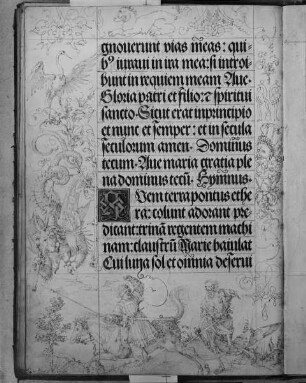 gnouerunt vias meas: qui-
bꝰ iuraui in ira mea: si introi
bunt in requiem meam Aue.
Gloria patri et filio: ⁊ spiritui
sancto. Sicut erat in principio
et nunc et semper: et in secula
seculorum amen. Dominus
tecum. Aue maria gratia ple
na dominus tecū. Hymnus.
Quem terra pontus ethe
ra: colunt adorant pre
dicant: trinā regentem machi
nam: claustrū Marie baiulat
Cui luna sol et omnia deserui